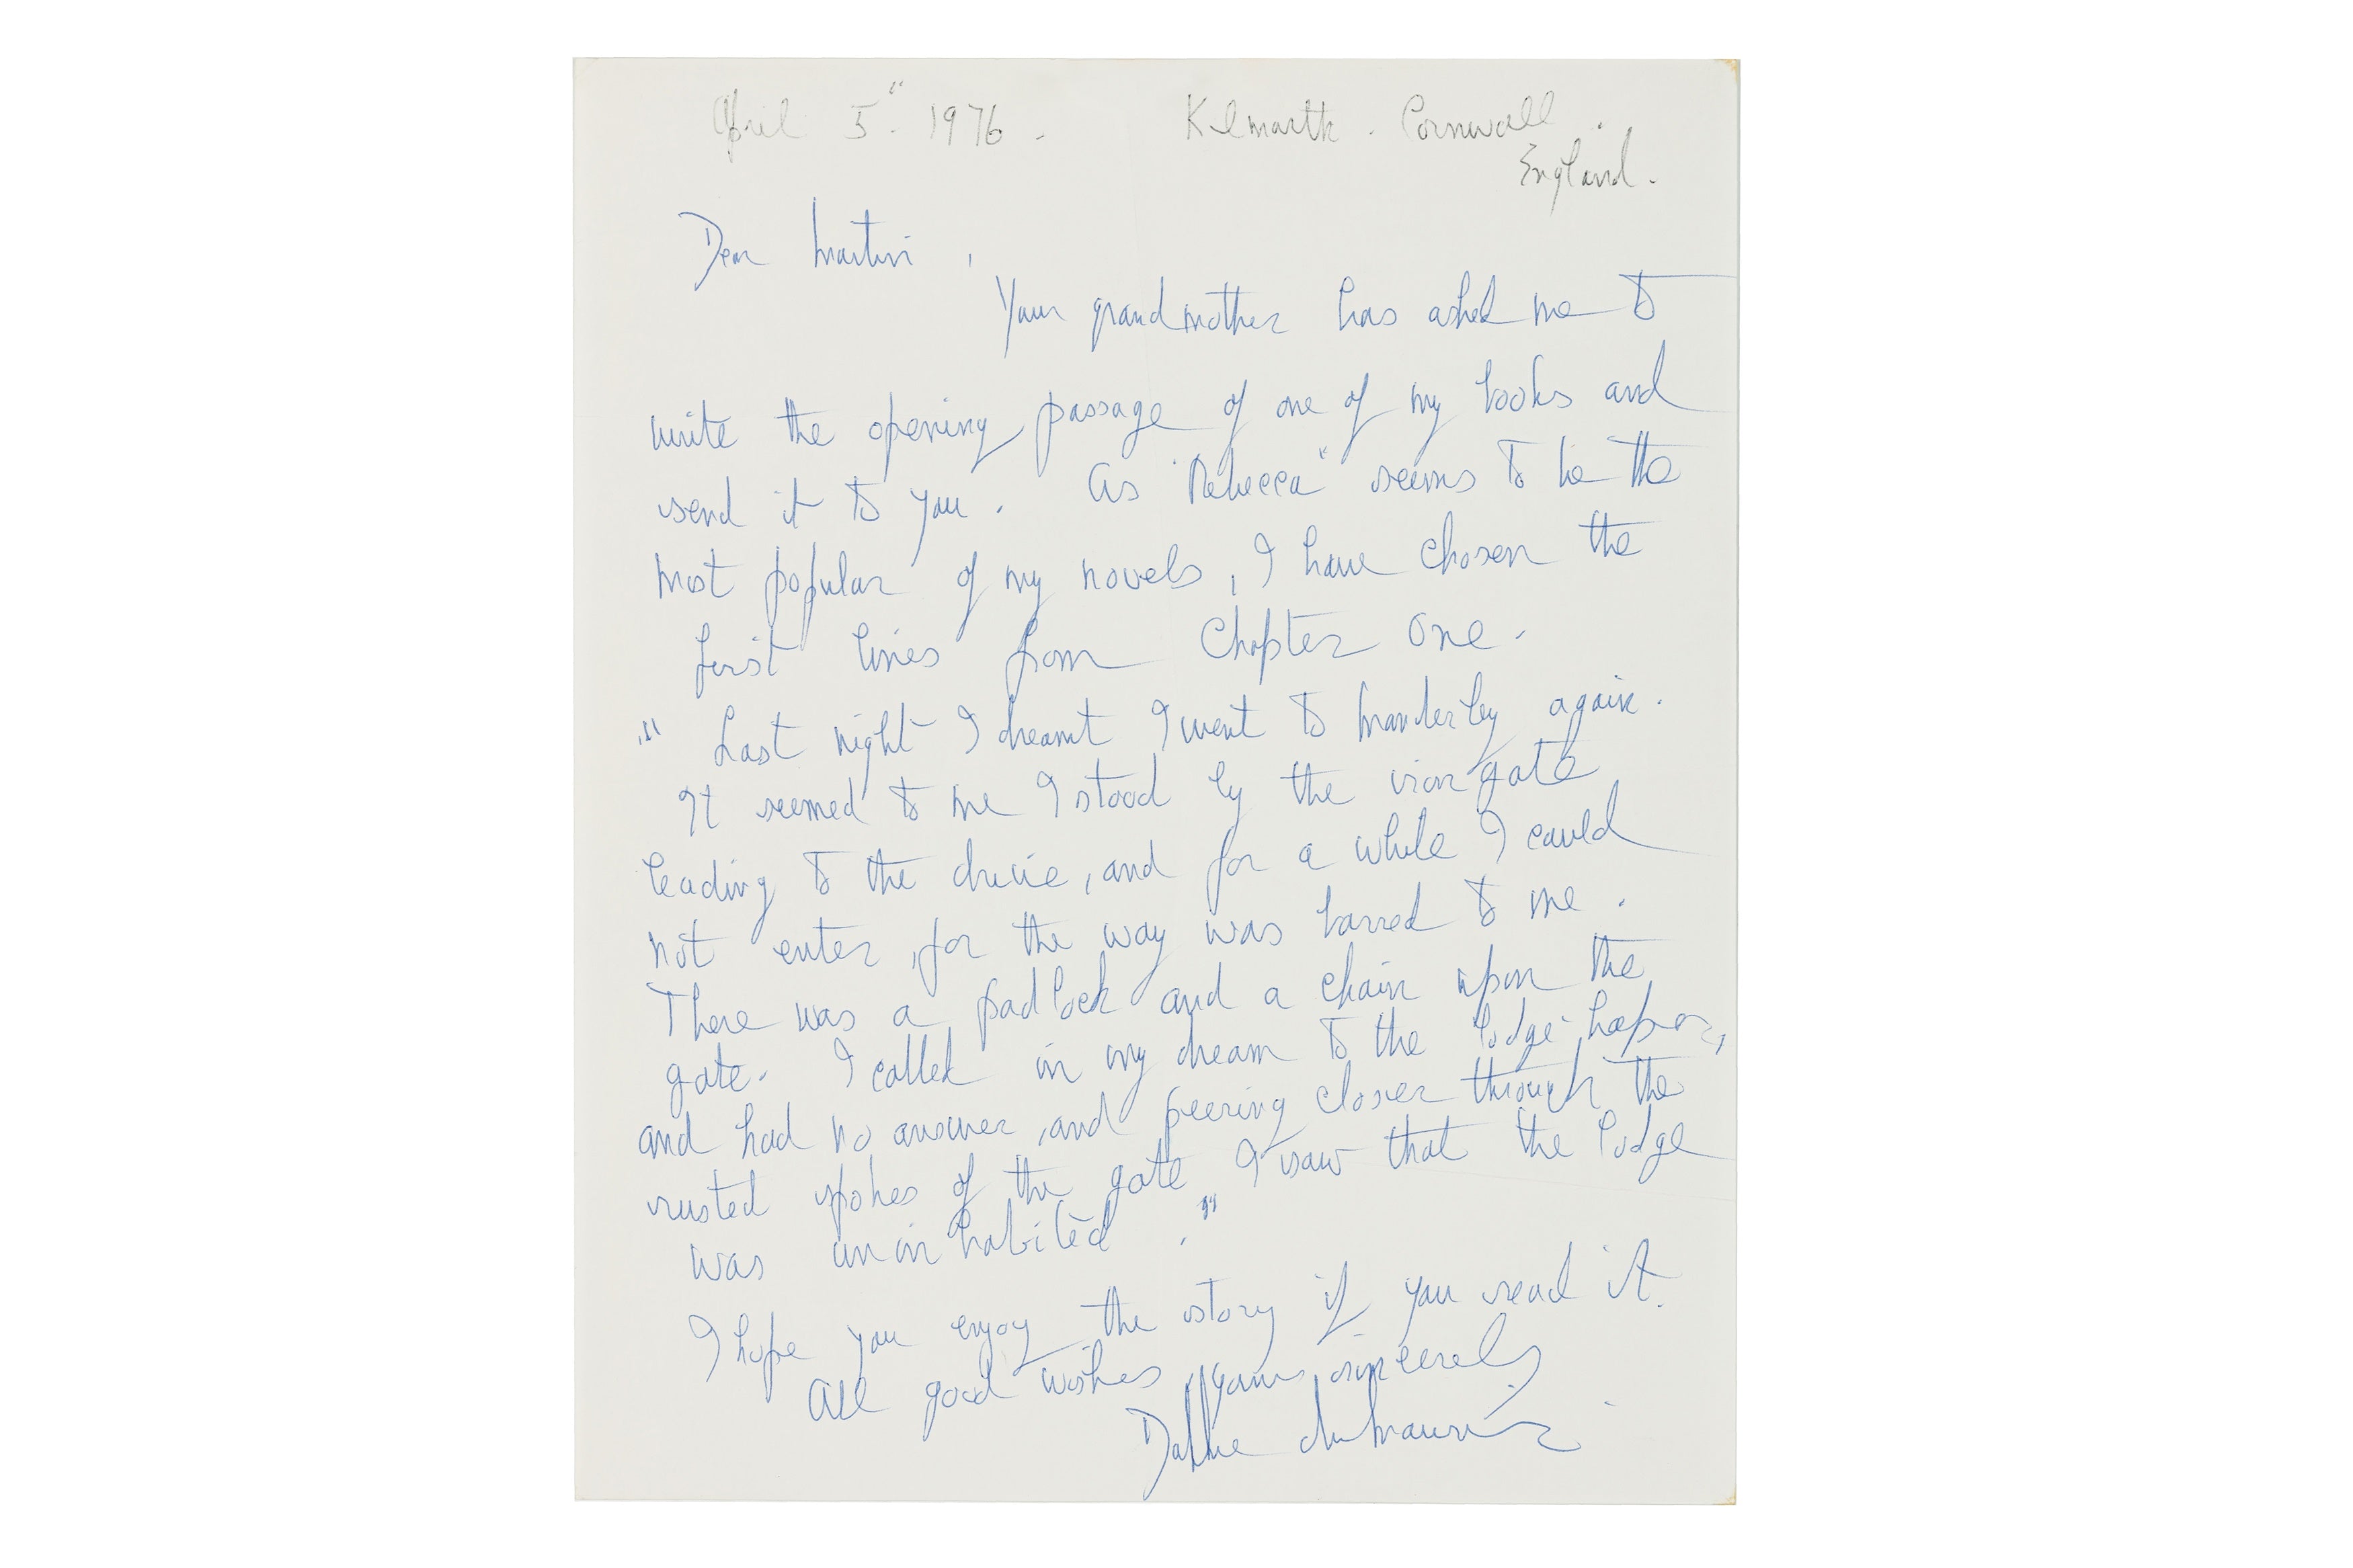 April 5" 1976. Kilmarth. Cornwall.
England.
Dear Martin,
Your grandmother has asked me to
write the opening passage of one of my books and
send it to you. As "Rebecca" seems to be the
most popular of my novels, I have chosen the
first lines from Chapter One.
" Last night I dreamt I went to Manderley again.
It seemed to me I stood by the iron gate
leading to the drive, and for a while I could
not enter, for the way was barred to me.
There was a padlock and a chain upon the
gate. I called in my dream to the lodge-keeper,
and had no answer, and peering closer through the
rusted spokes of the gate I saw that the lodge
was uninhabited."
I hope you enjoy the story if you read it.
All good wishes, yours sincerely
Daphne du Maurier